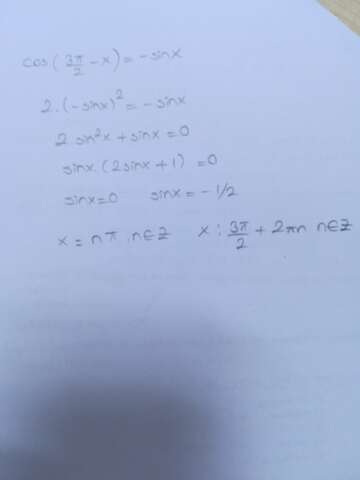 cos(3π/2 - x) = -sinx
2.(-sinx)² = -sinx
2 sin²x + sinx = 0
sinx.(2sinx + 1) = 0
sinx = 0 sinx = -1/2
x = nπ, n∈Z x: 3π/2 + 2πn n∈Z